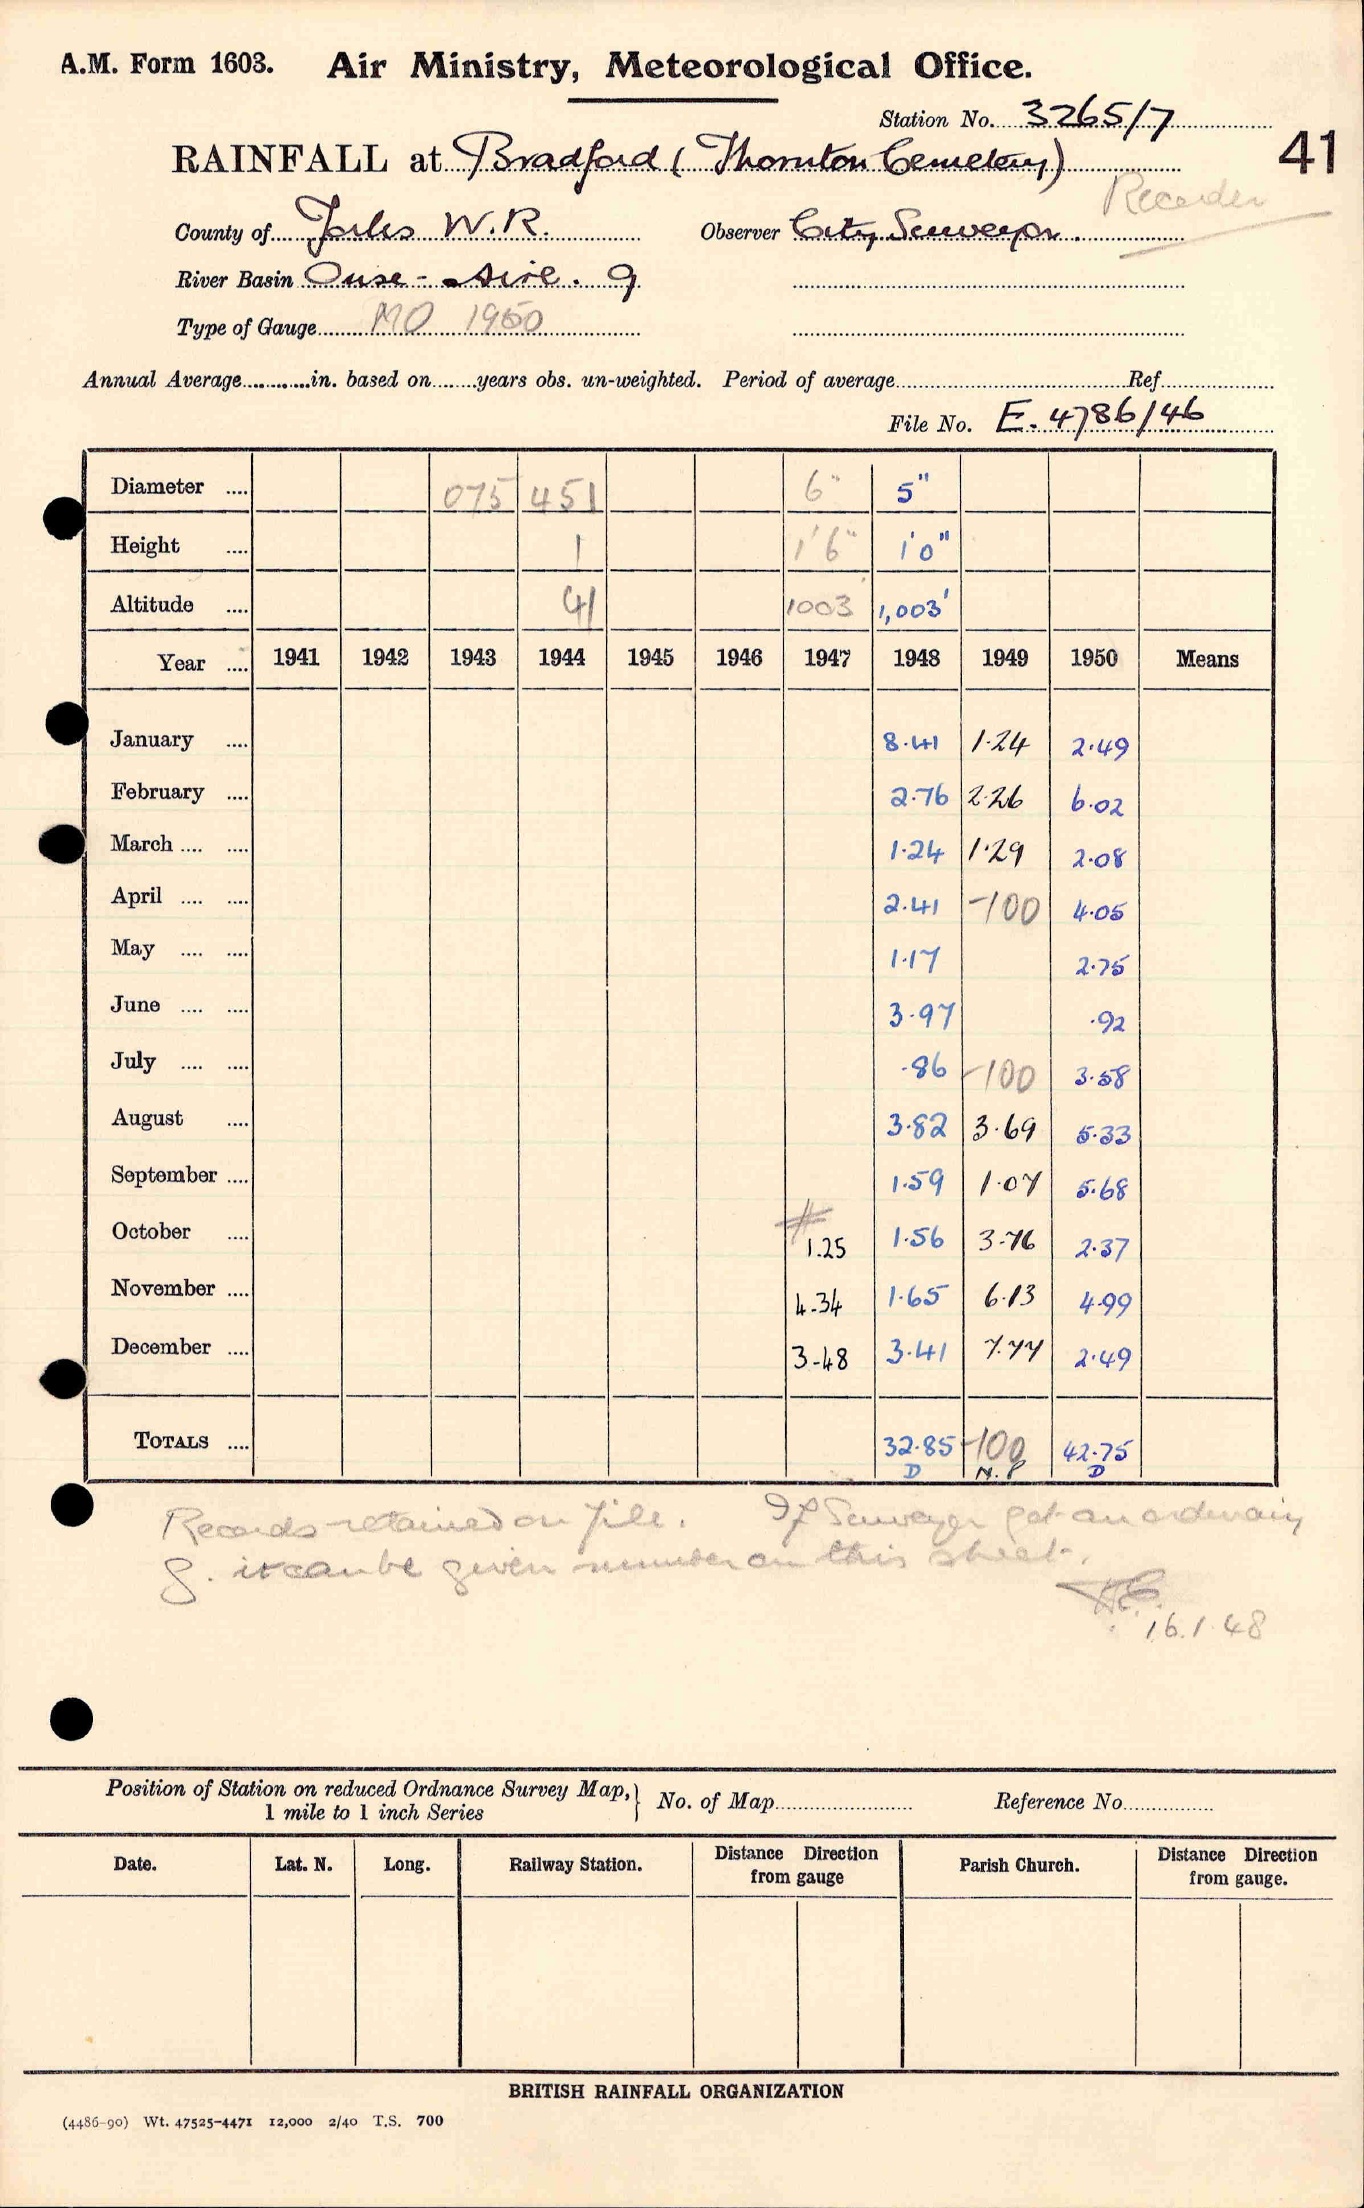 A.M. Form 1603. Air Ministry, Meteorological Office.
Station No. 3265/7
41
RAINFALL at Bradford (Thornton Cemetery)
Recorder
County of Yorks W.R. Observer City Surveyor.
River Basin Ouse - Aire. 9
Type of Gauge MO 1950
Annual Average............in. based on........years obs. un-weighted. Period of average........ Ref........
File No. E. 4786/46
Diameter .... 075 451 6" 5"
Height .... 1 1'6" 1'0"
Altitude .... 41 1003 1,003'
Year .... 1941 1942 1943 1944 1945 1946 1947 1948 1949 1950 Means
January .... 8.41 1.24 2.49
February .... 2.76 2.26 6.02
March .... .... 1.24 1.29 2.08
April .... .... 2.41 -100 4.05
May .... .... 1.17 2.75
June .... .... 3.97 .92
July .... .... .86 -100 3.58
August .... 3.82 3.69 5.33
September .... 1.59 1.07 5.68
October .... # 1.25 1.56 3.76 2.37
November .... 4.34 1.65 6.13 4.99
December .... 3.48 3.41 7.77 2.49
TOTALS .... 32.85 -100 42.75
D N.P D
Records retained on file. If Surveyor gets an ordinary
g. it can be given number on this sheet.
16.1.48
Position of Station on reduced Ordnance Survey Map, } No. of Map........ Reference No........
1 mile to 1 inch Series
Date. Lat. N. Long. Railway Station. Distance Direction from gauge Parish Church. Distance Direction from gauge.
BRITISH RAINFALL ORGANIZATION
(4486-90) Wt. 47525-4471 12,000 2/40 T.S. 700